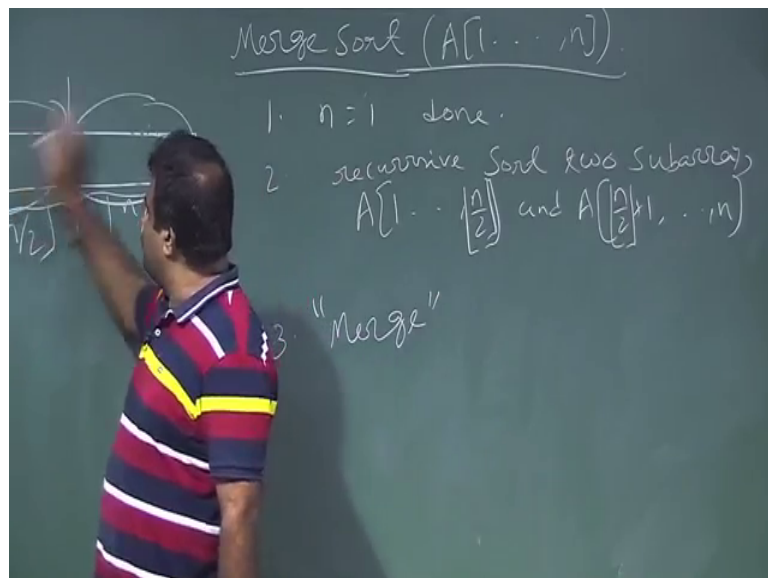 Merge Sort (A[1 . . . , n]).
1. n = 1 done.
2 recurrsive Sort two Subarray,
A[1 . . ⌊n/2⌋] and A[⌊n/2⌋+1, . ., n]
n/2⌋ ⌈n
3. "Merge"